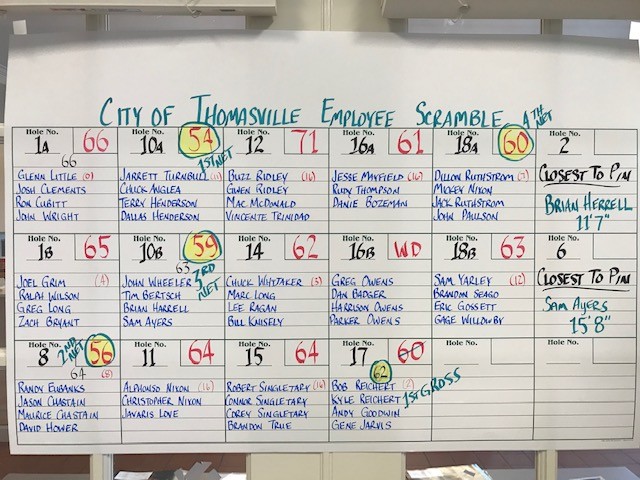 CITY OF THOMASVILLE EMPLOYEE SCRAMBLE
Hole No. 1A 66
66
GLENN LITTLE (0)
JOSH CLEMENTS
RON CUBITT
JOHN WRIGHT
Hole No. 10A 54
1ST NET
JARRETT TURNBULL (11)
CHUCK ANGLEA
TERRY HENDERSON
DALLAS HENDERSON
Hole No. 12 71
BUZZ RIDLEY (16)
GWEN RIDLEY
MAC MCDONALD
VINCENTE TRINIDAD
Hole No. 16A 61
JESSE MAYFIELD (16)
RUDY THOMPSON
DANIE BOZEMAN
Hole No. 18A 60
4TH NET
DILLON RUTHSTROM (7)
MICKEY NIXON
JACK RUTHSTROM
JOHN PAULSON
Hole No. 2
CLOSEST TO PIN
BRIAN HERRELL
11'7"
Hole No. 1B 65
JOEL GRIM (4)
RALPH WILSON
GREG LONG
ZACH BRYANT
Hole No. 10B 59
63
3RD NET
JOHN WHEELER
TIM BERTSCH
BRIAN HARRELL
SAM AYERS
Hole No. 14 62
CHUCK WHITAKER (5)
MARC LONG
LEE RAGAN
BILL KNISELY
Hole No. 16B WD
GREG OWENS
DAN BADGER
HARRISON OWENS
PARKER OWENS
Hole No. 18B 63
SAM YARLEY (12)
BRANDON SEAGO
ERIC GOSSETT
GAGE WILLOWBY
Hole No. 6
CLOSEST TO PIN
SAM AYERS
15'8"
Hole No. 8 56
2ND NET
64 (8)
RANDY EUBANKS
JASON CHASTAIN
MAURICE CHASTAIN
DAVID HOWER
Hole No. 11 64
ALPHONSO NIXON (16)
CHRISTOPHER NIXON
JAVARIS LOVE
Hole No. 15 64
ROBERT SINGLETARY (16)
CONNOR SINGLETARY
COREY SINGLETARY
BRANDON TRUE
Hole No. 17 60
62
1ST GROSS
BOB REICHERT (2)
KYLE REICHERT
ANDY GOODWIN
GENE JARVIS
Hole No.
Hole No.